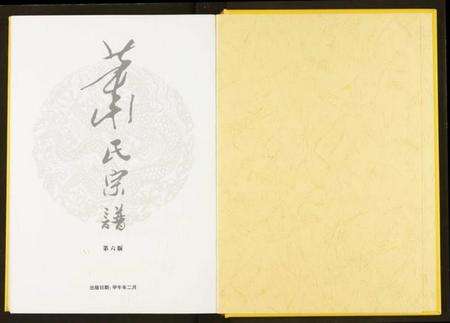 蕭氏宗譜
第六版
出版日期：甲午年二月